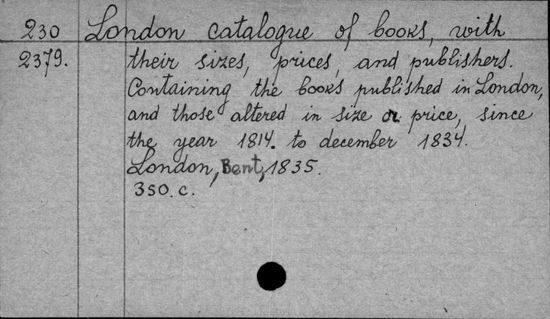 230 London catalogue of books, with
2379. their sizes, prices, and publishers.
Containing the books published in London,
and those altered in size or price, since
the year 1814. to december 1834.
London, Bent, 1835.
350. c.